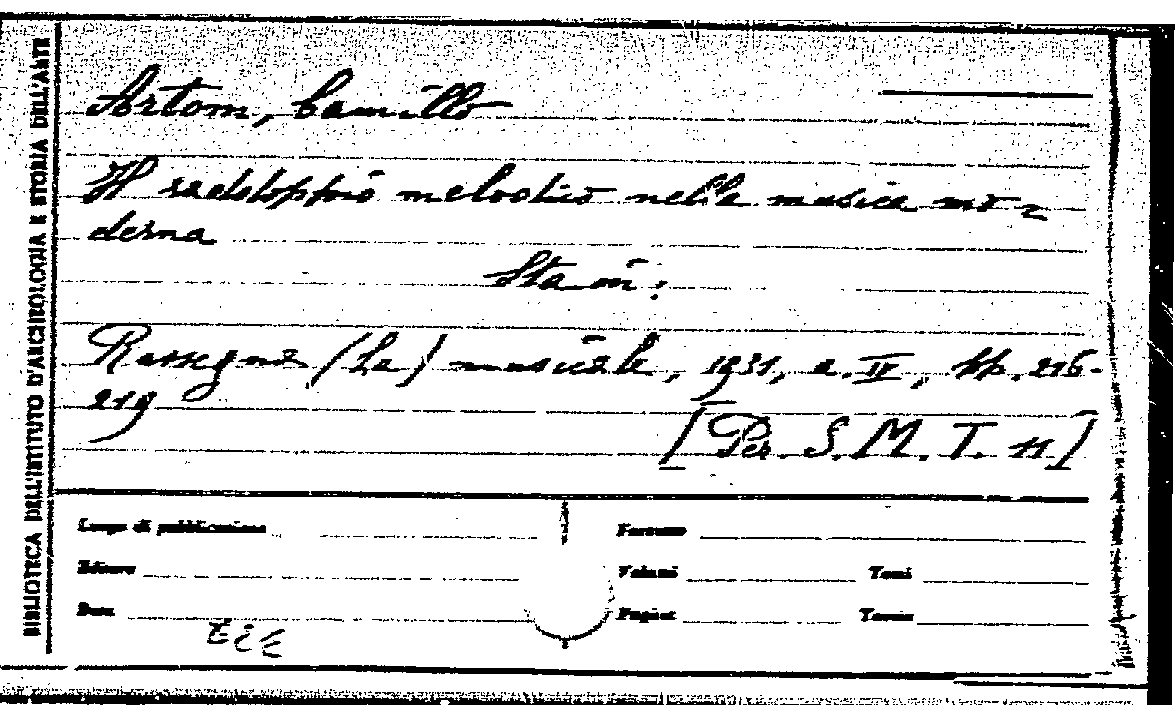 BIBLIOTECA DELL'ISTITUTO D'ARCHEOLOGIA E STORIA DELL'ARTE
Artom, Camillo
Il raddoppio melodico nella musica mo=
derna
Sta in:
Rassegna (La) musicale, 1931, a. IV, pp. 216-
219
[Per. S. M. T. 11]
Luogo di pubblicazione
Formato
Editore
Volumi
Tomi
Data
Pagine
Tavole